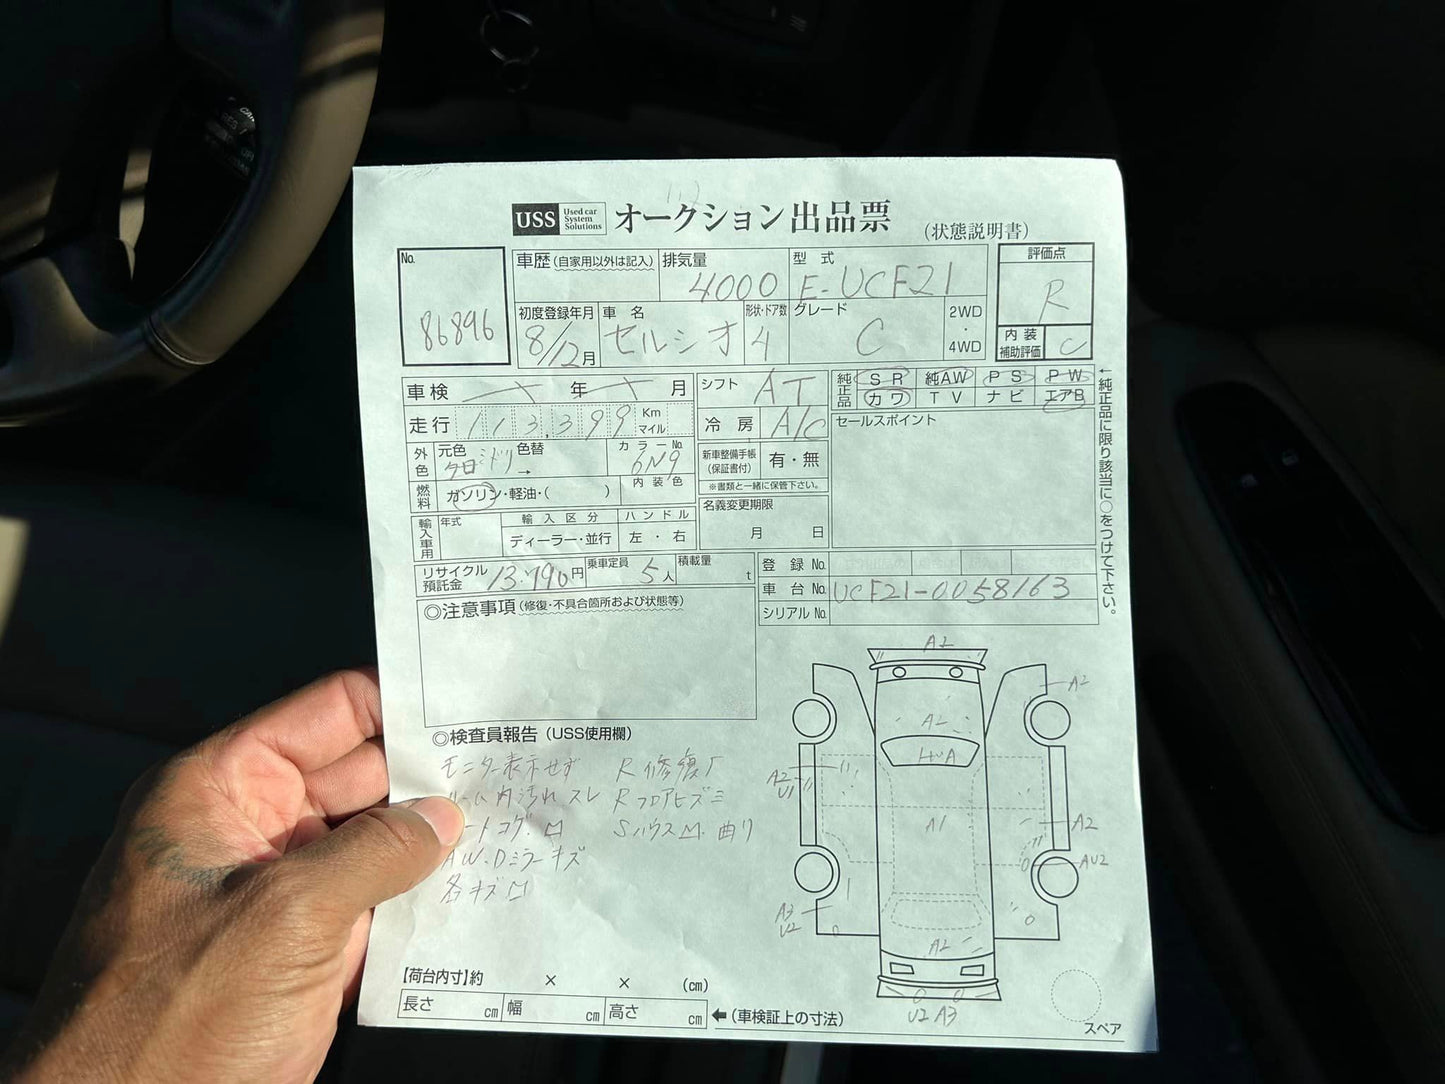 USS Used car System Solutions オークション出品票 (状態説明書)
No. 86896
車歴 (自家用以外は記入)
排気量 4000
型式 E-UCF21
評価点 R
初度登録年月 8/12月
車名 セルシオ
形状・ドア数 4
グレード C
2WD・4WD
内装補助評価 C
車検 年 月
シフト AT
純正品 SR 純AW PS PW
カワ TV ナビ エアB
走行 113,399 Km マイル
冷房 A/C
セールスポイント
外色 元色 クロミドリ 色替 →
カラーNo. 6N9
新車整備手帳 (保証書付) 有・無
※書類と一緒に保管下さい。
燃料 ガソリン・軽油・( )
内装色
名義変更期限 月 日
輸入車用 年式
輸入区分 ディーラー・並行
ハンドル 左・右
←純正品に限り該当に○をつけて下さい。
リサイクル預託金 13,790円
乗車定員 5人
積載量 t
登録No.
車台No. UCF21-0058163
シリアルNo.
◎注意事項 (修復・不具合箇所および状態等)
◎検査員報告 (USS使用欄)
モニター表示せず R修復ア
ルーム内汚れスレ Rフロアヒズミ
コゲ凹 Sハウス凹曲り
AW.Dミラーキズ
各キズ凹
A2
A2
A2
ハンA
A2
U1
A1
A2
AU2
A3
U2
A2
U2 A3
スペア
【荷台内寸】約 × × (cm)
長さ cm 幅 cm 高さ cm ←(車検証上の寸法)